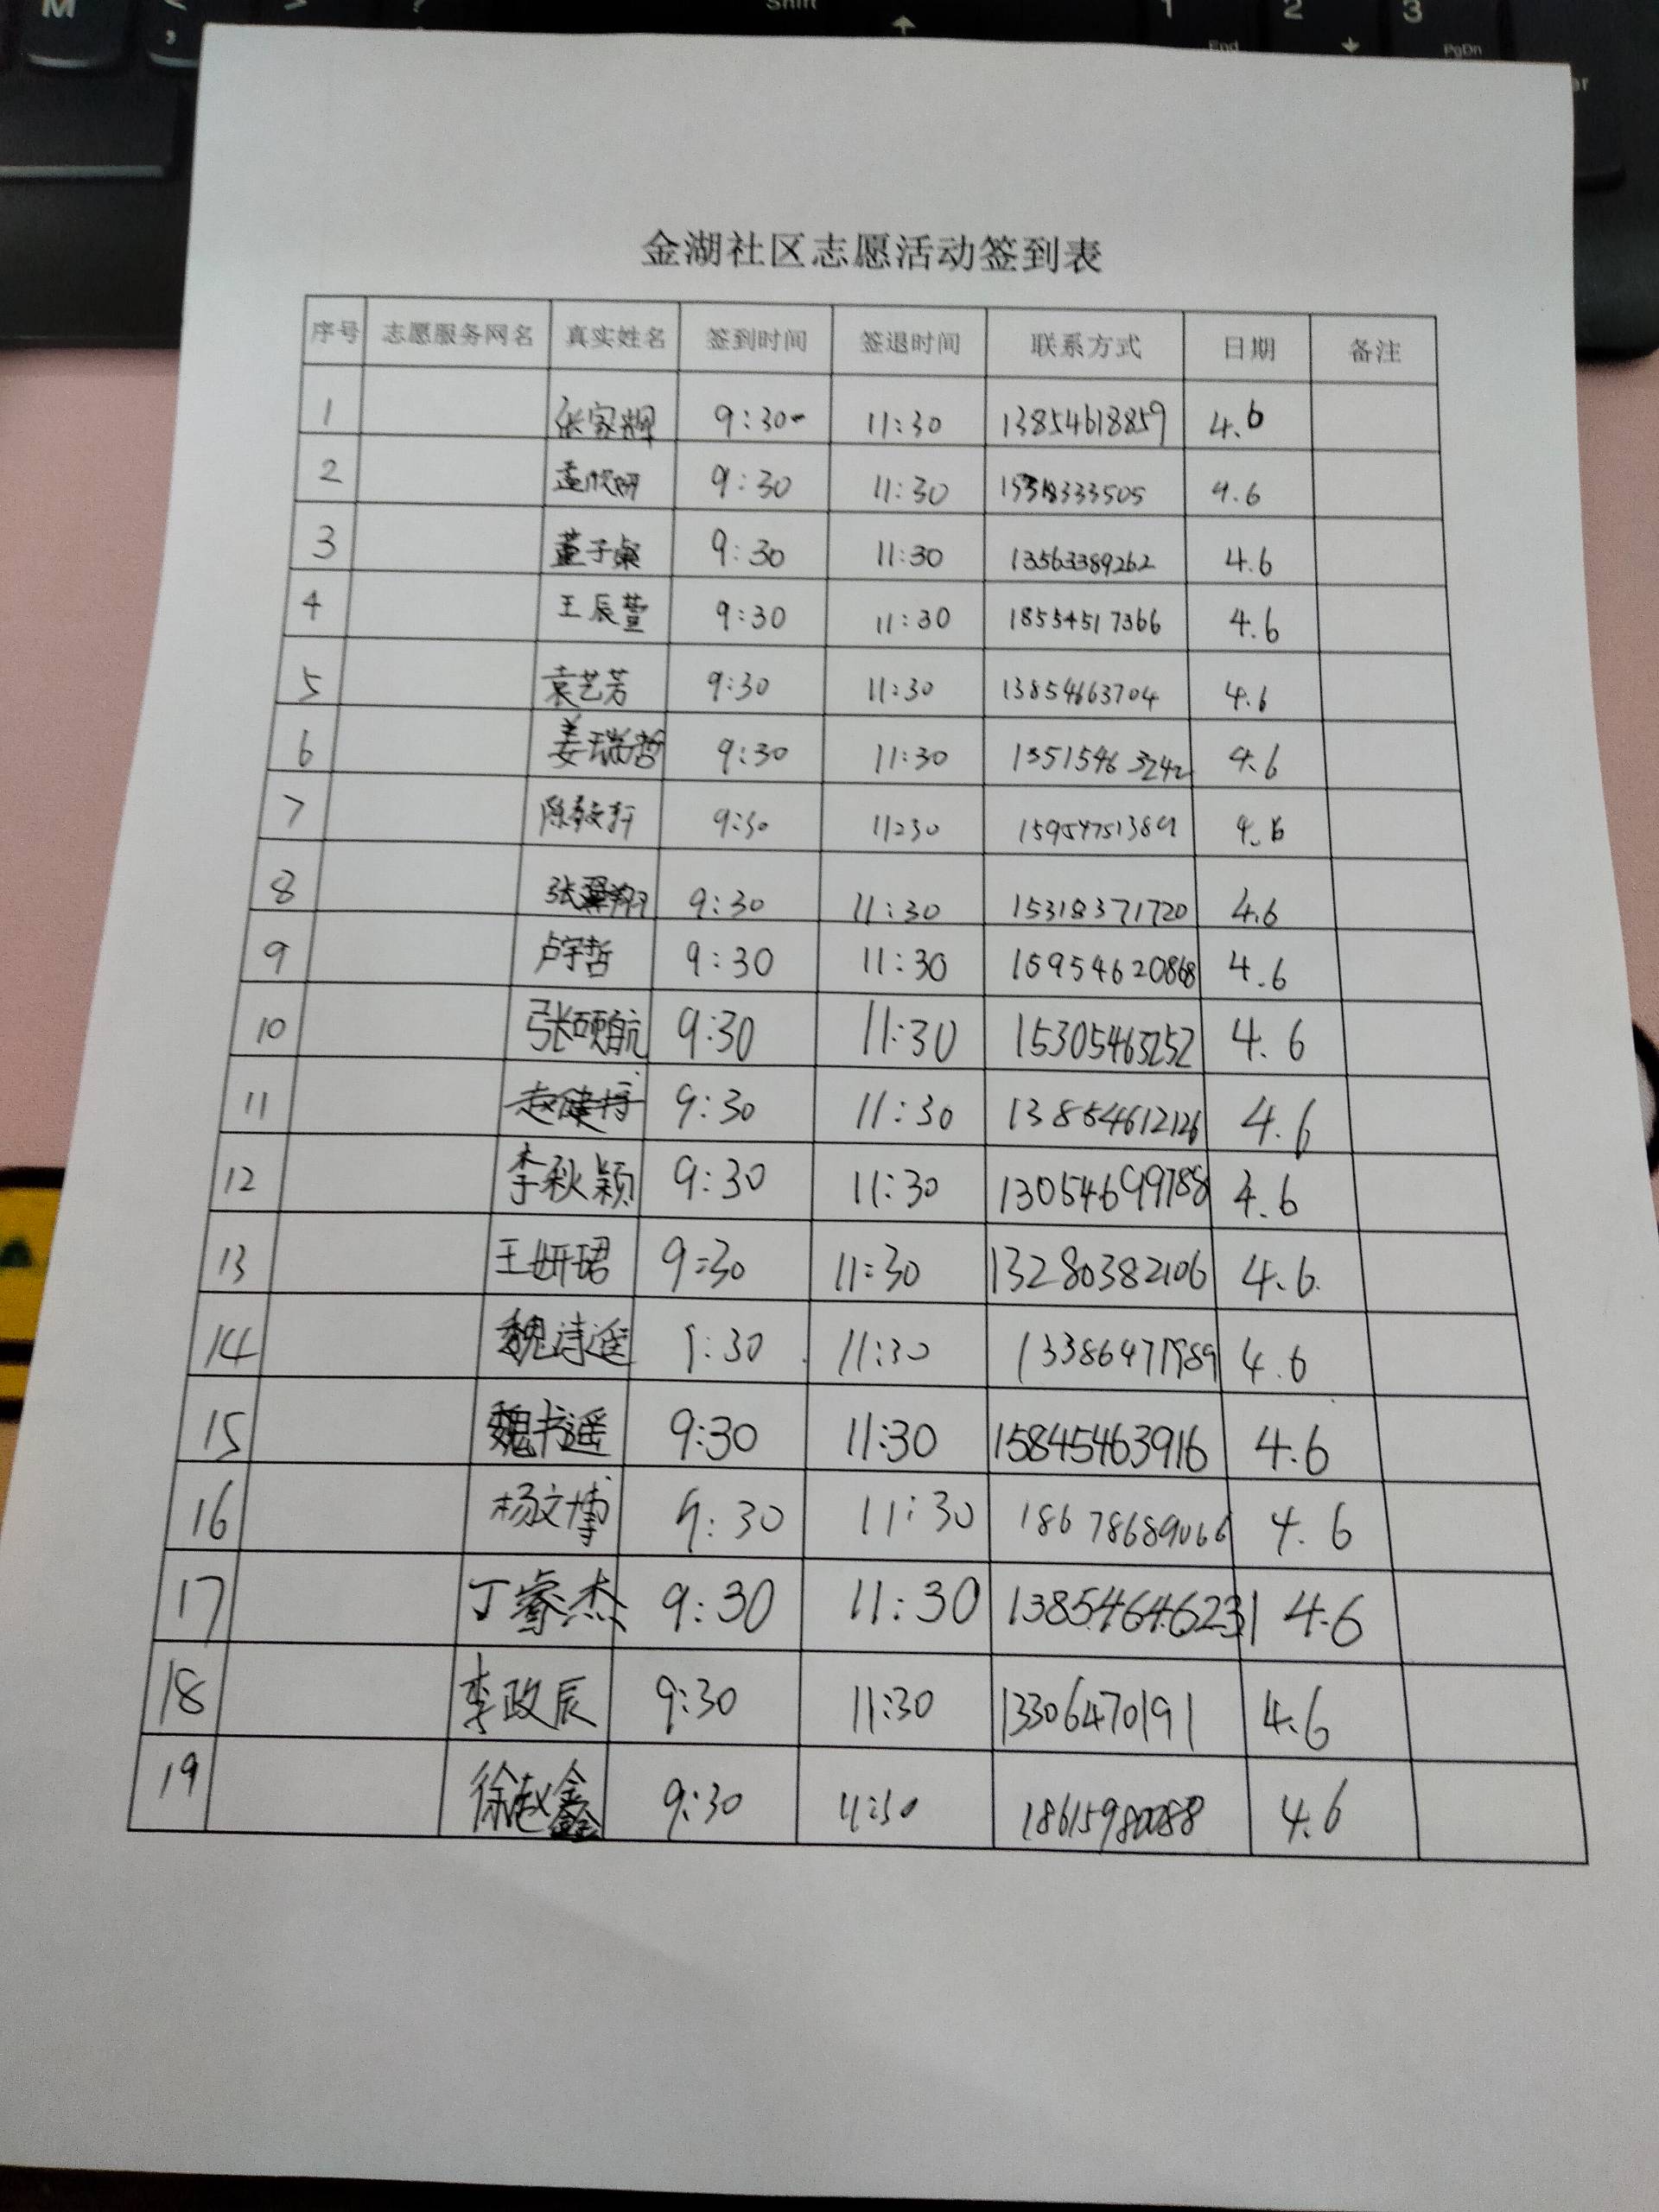 金湖社区志愿活动签到表
序号 志愿服务网名 真实姓名 签到时间 签退时间 联系方式 日期 备注
1 张家辉 9:30 11:30 13854618859 4.6
2 孟欣妍 9:30 11:30 4.6
3 董子 9:30 11:30 13563389262 4.6
4 王辰萱 9:30 11:30 18554517366 4.6
5 袁艺芳 9:30 11:30 13854663704 4.6
6 姜瑞哲 9:30 11:30 13515463242 4.6
7 9:30 11:30 4.6
8 张翔 9:30 11:30 15318371720 4.6
9 卢宇哲 9:30 11:30 15954620868 4.6
10 张硕航 9:30 11:30 15305465252 4.6
11 赵健 9:30 11:30 13854612126 4.6
12 李秋颖 9:30 11:30 13054699788 4.6
13 王妍珺 9:30 11:30 13280382106 4.6
14 魏诗遥 9:30 11:30 13386471989 4.6
15 魏书遥 9:30 11:30 15845463916 4.6
16 杨文博 9:30 11:30 18678689066 4.6
17 丁睿杰 9:30 11:30 13854646231 4.6
18 李政辰 9:30 11:30 13306470191 4.6
19 徐赵鑫 9:30 11:30 18615980088 4.6
M
Shift
1 End
2
3 PgDn